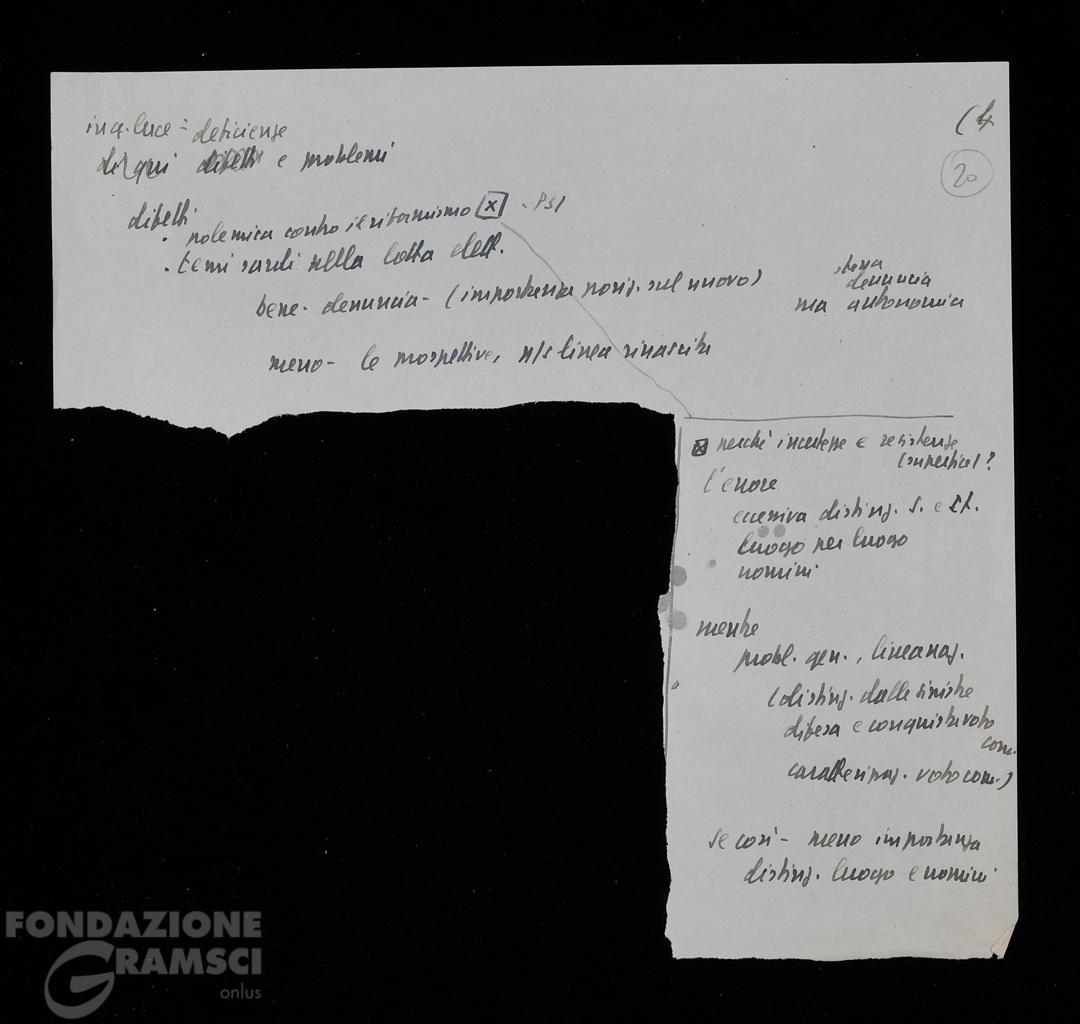 (4
20
in q. luce = deficienze
di qui difetti e problemi
difetti
. polemica contro il riformismo [x] . PSI
. temi sardi nella lotta elett.
bene - denuncia - (importanza posiz. sul nuovo)
stessa
denuncia
ma autonomia
meno - le prospettive, n/s linea rinascita
[x] perché incertezze e resistenze
(superfice) ?
l'errore
eccessiva disting. S. e
luogo per luogo
uomini
mentre
probl. gen., linea naz.
(disting. dalle sinistre
difesa e conquista voto
com.
caratterizzaz. voto com.)
se così - meno importanza
disting. luogo e uomini
FONDAZIONE
GRAMSCI
onlus